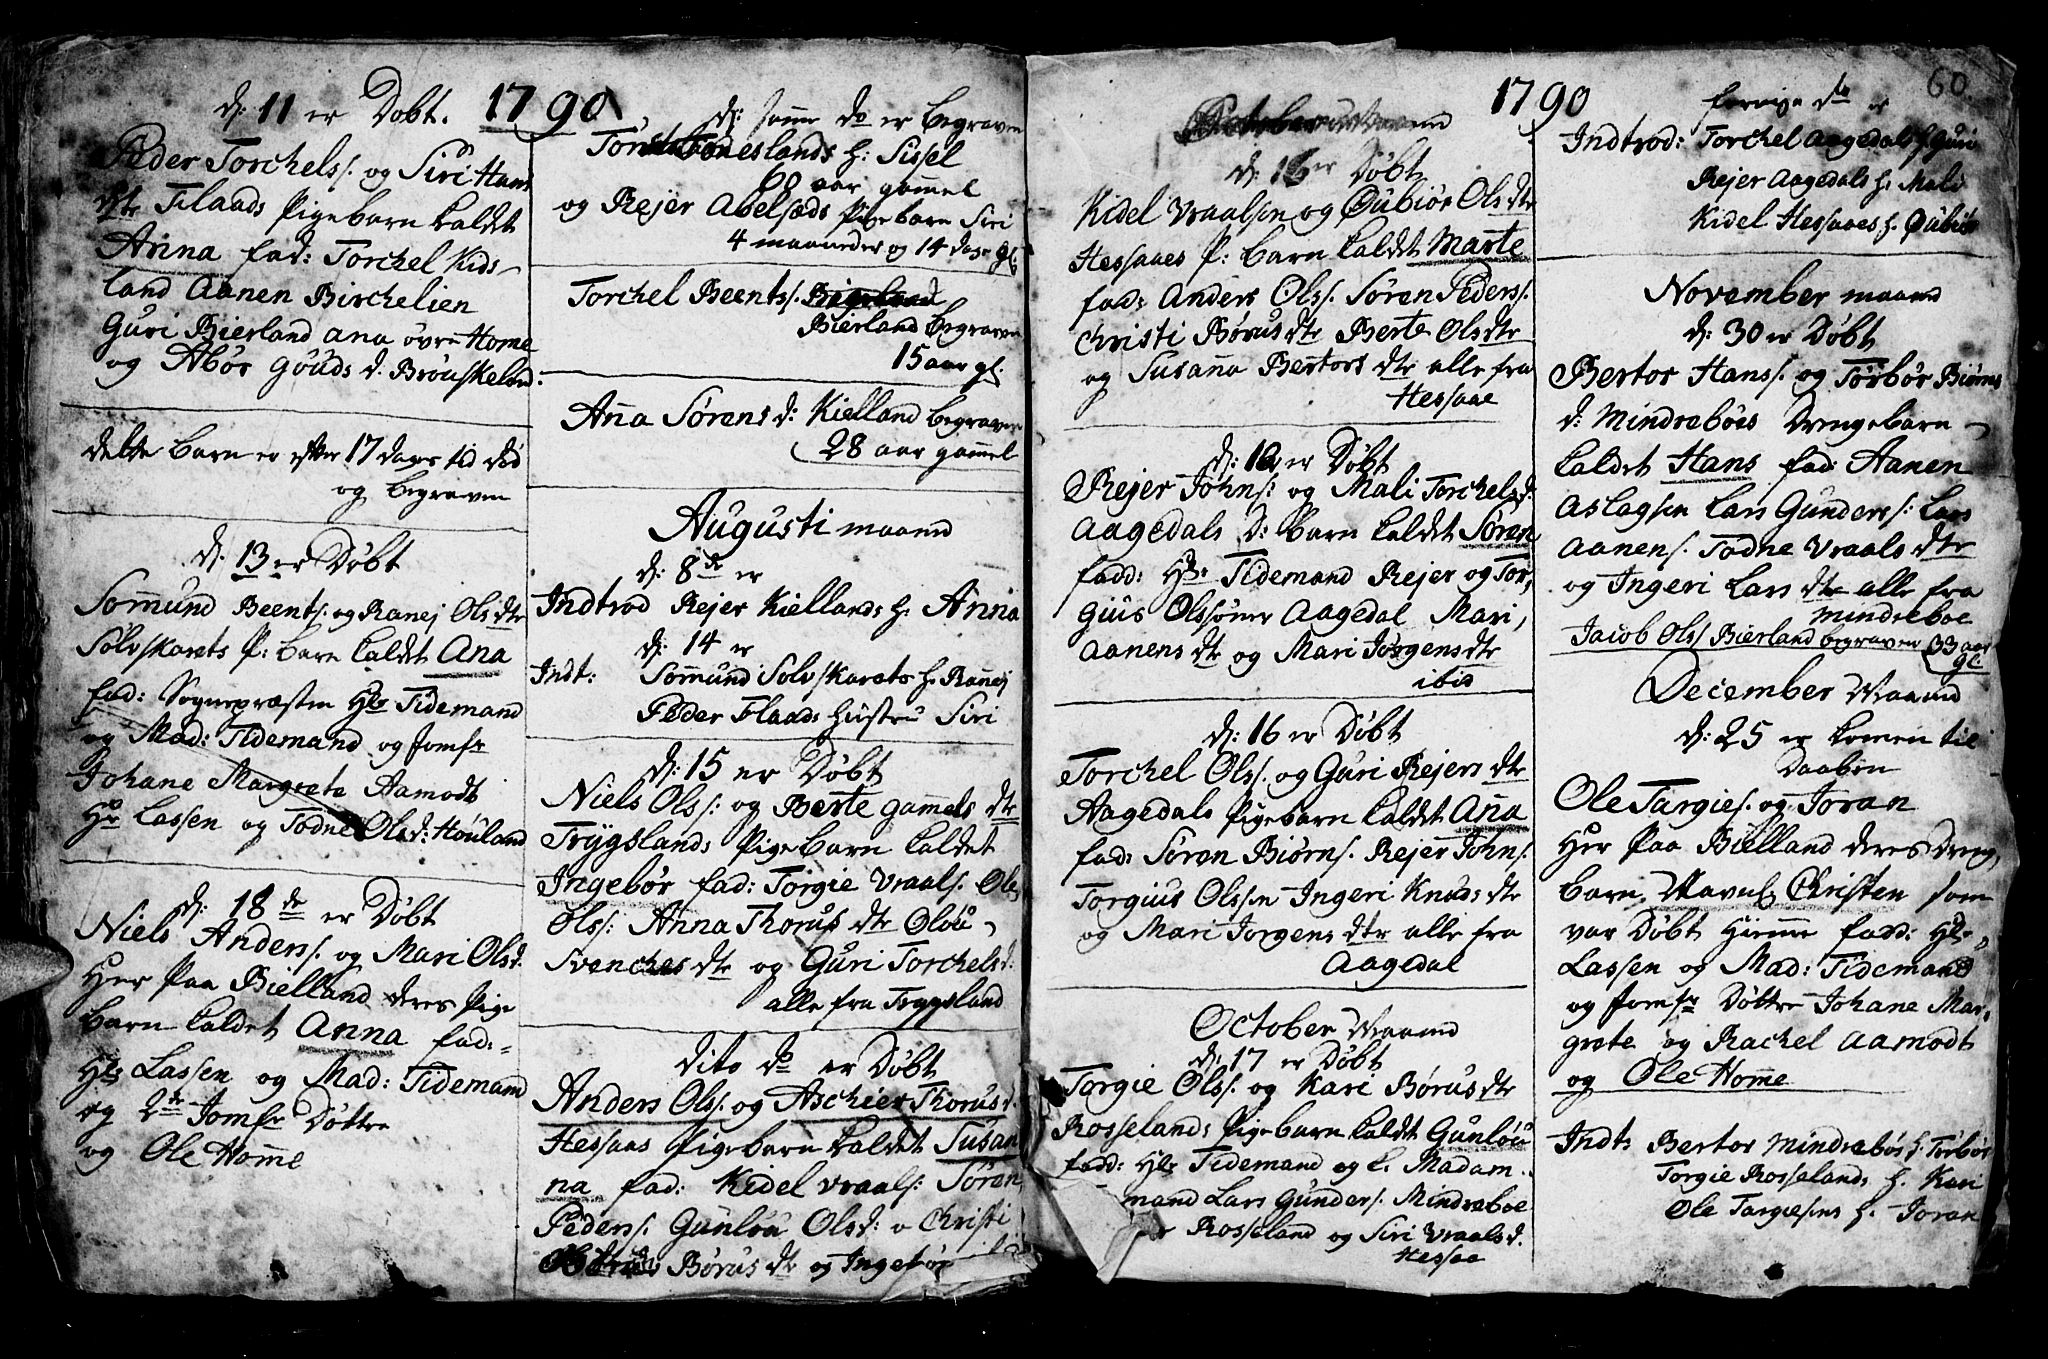 1790
d: 11 er Døbt.
Peder Torchels: og Siri Hans
dtr Flaads Pigebarn kaldet
Anna fad: Torchel Kids-
land Aanen Birchelien
Guri Bierland ana øvre Home
og Abør Gouds d. Brøuskeland:
dette barn er efter 17 dages tid død
og begraven
d: 13 er Døbt
Somund Beents: og Ranej Ols dtr
Solvskarets P: barn kaldet Ana
fad: Sognepræsten Hr Tidemand
og Mad: Tidemand og Jomfr
Johane Margreta Aamodt
Hr Lassen og Todne Ols d: Houland
d: 18 de er Døbt
Niels Anders: og Mari Ols d.
Her Paa Bielland deres Pige
barn kaldet Anna fad:
Hr Lassen og Mad: Tidemand
og 2de Jomfr Døttre
og Ole Home
d: samme do er begraven
h: Sissel
68 aar gamel
og Rejer Abelsæds Pigebarn Siri
4 maaneder og 14 dage gl:
Torchel Beents:
Bierland begraven
15 aar gl:
Ana Sørens d: Kielland begraven
28 aar gamel
Augusti maaned
d: 8de er
Indtrod Rejer Kiellands h: Anna
d: 14 er
Indt: Somund Solvskarets h: Ranej
Peder Flaads hustru Siri
d: 15 er Døbt
Niels Ols: og Berte gamels dtr
Trygslands Pigebarn kaldet
Ingebør fad: Torgie Vraals: Ole
Ols: Anna Thorus dtr Olou
Svenches dtr og Guri Torchels d:
alle fra Trygsland
dito do er Døbt
Anders Ols: og Aschier Thorus d.
Hessaas Pigebarn kaldet Susan
na fad: Kidel Vraals: Søren
Peders: Gunlou Ols d: o Christi
Børus dtr og Ingebør
1790
60.
maaned
d: 16 er Døbt
Kidel Vraalsen og Oubiør Ols dtr
Hessaaes P: barn kaldet Marte
fad: Anders Ols: Søren Peders:
Christi Børus dtr Berte Ols dtr
og Susana Bertors dtr alle fra
Hessaae
d: 16 er Døbt
Rejer Johns: og Mali Torchels d:
Aagedals D: barn kaldet Søren
fadd: Hr Tidemand Rejer og Tor,
gius Olssøner Aagedal Mari,
Aanens dtr og Mari Jorgens dtr
ibid
d: 16 er Døbt
Torchel Ols: og Guri Rejers dtr
Aagedals Pigebarn kaldet Ana
fad: Søren Biørns: Rejer Johns:
Torgius Olssen Ingeri Knuds dtr
og Mari Jorgens dtr alle fra
Aagedal
October Maaned
d: 17 er Døbt
Torgie Ols: og Kari Børus dtr
Rosselands Pigebarn kaldet Gunlou
fadd: Hr Tidemand og l. Madam
mand Lars Gunders: Mindreboe
Rosseland og Siri Vraals d.
Hessaae
forrige do er
Indtrod: Torchel Aagedals h: Guri
Rejer Aagedals h: Mali
Kidel Hessaaes h. Oubiør
November maaned
d: 30 er Døbt
Bertor Hans: og Torbør Biørns
d: Mindrebøes Drengebarn
kaldet Hans fad: Aanen
Aslagsen Lars Gunders: Lars
Aanens: Todne Vraals dtr
og Ingeri Lars dtr alle fra
Mindreboe
Jacob Ols: Bierland begraven 33 aar
gl:
December Maaned
d: 25 er komen til
Daaben
Ole Targies: og Joran
Her Paa Bielland deres Dreng,
barn, Navnl: Christen som
var Døbt Hiemme fadd: Hr
Lassen og Mad: Tidemand
og Jomfr Døttre Johane Mar,
grete og Rachel Aamodt
og Ole Home
Indt: Bertor Mindrebøs h. Torbør
Torgie Rosselands h. Kari
Ole Targiesens h. Joran